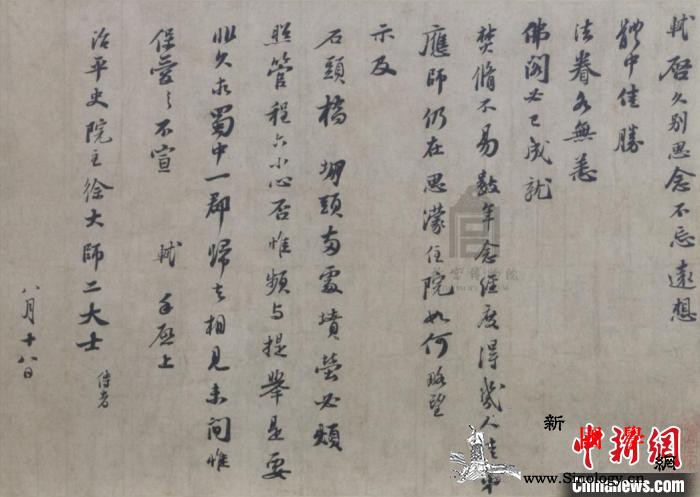 軾啓久別思念不忘遠想
體中佳勝
法眷各無恙
佛閣必已成就
焚脩不易數年念經度得幾人徒弟
應師仍在思濛住院如何略望
示及
石頭橋 堋頭兩處墳塋必煩
照管程六小心否惟頻与提舉是要
非久求蜀中一郡歸去相見未間惟
保愛之不宣 軾手啓上
治平史院主徐大師二大士 侍者
八月十八日
中新網
www.Sinology.cn
www.chinanews.com